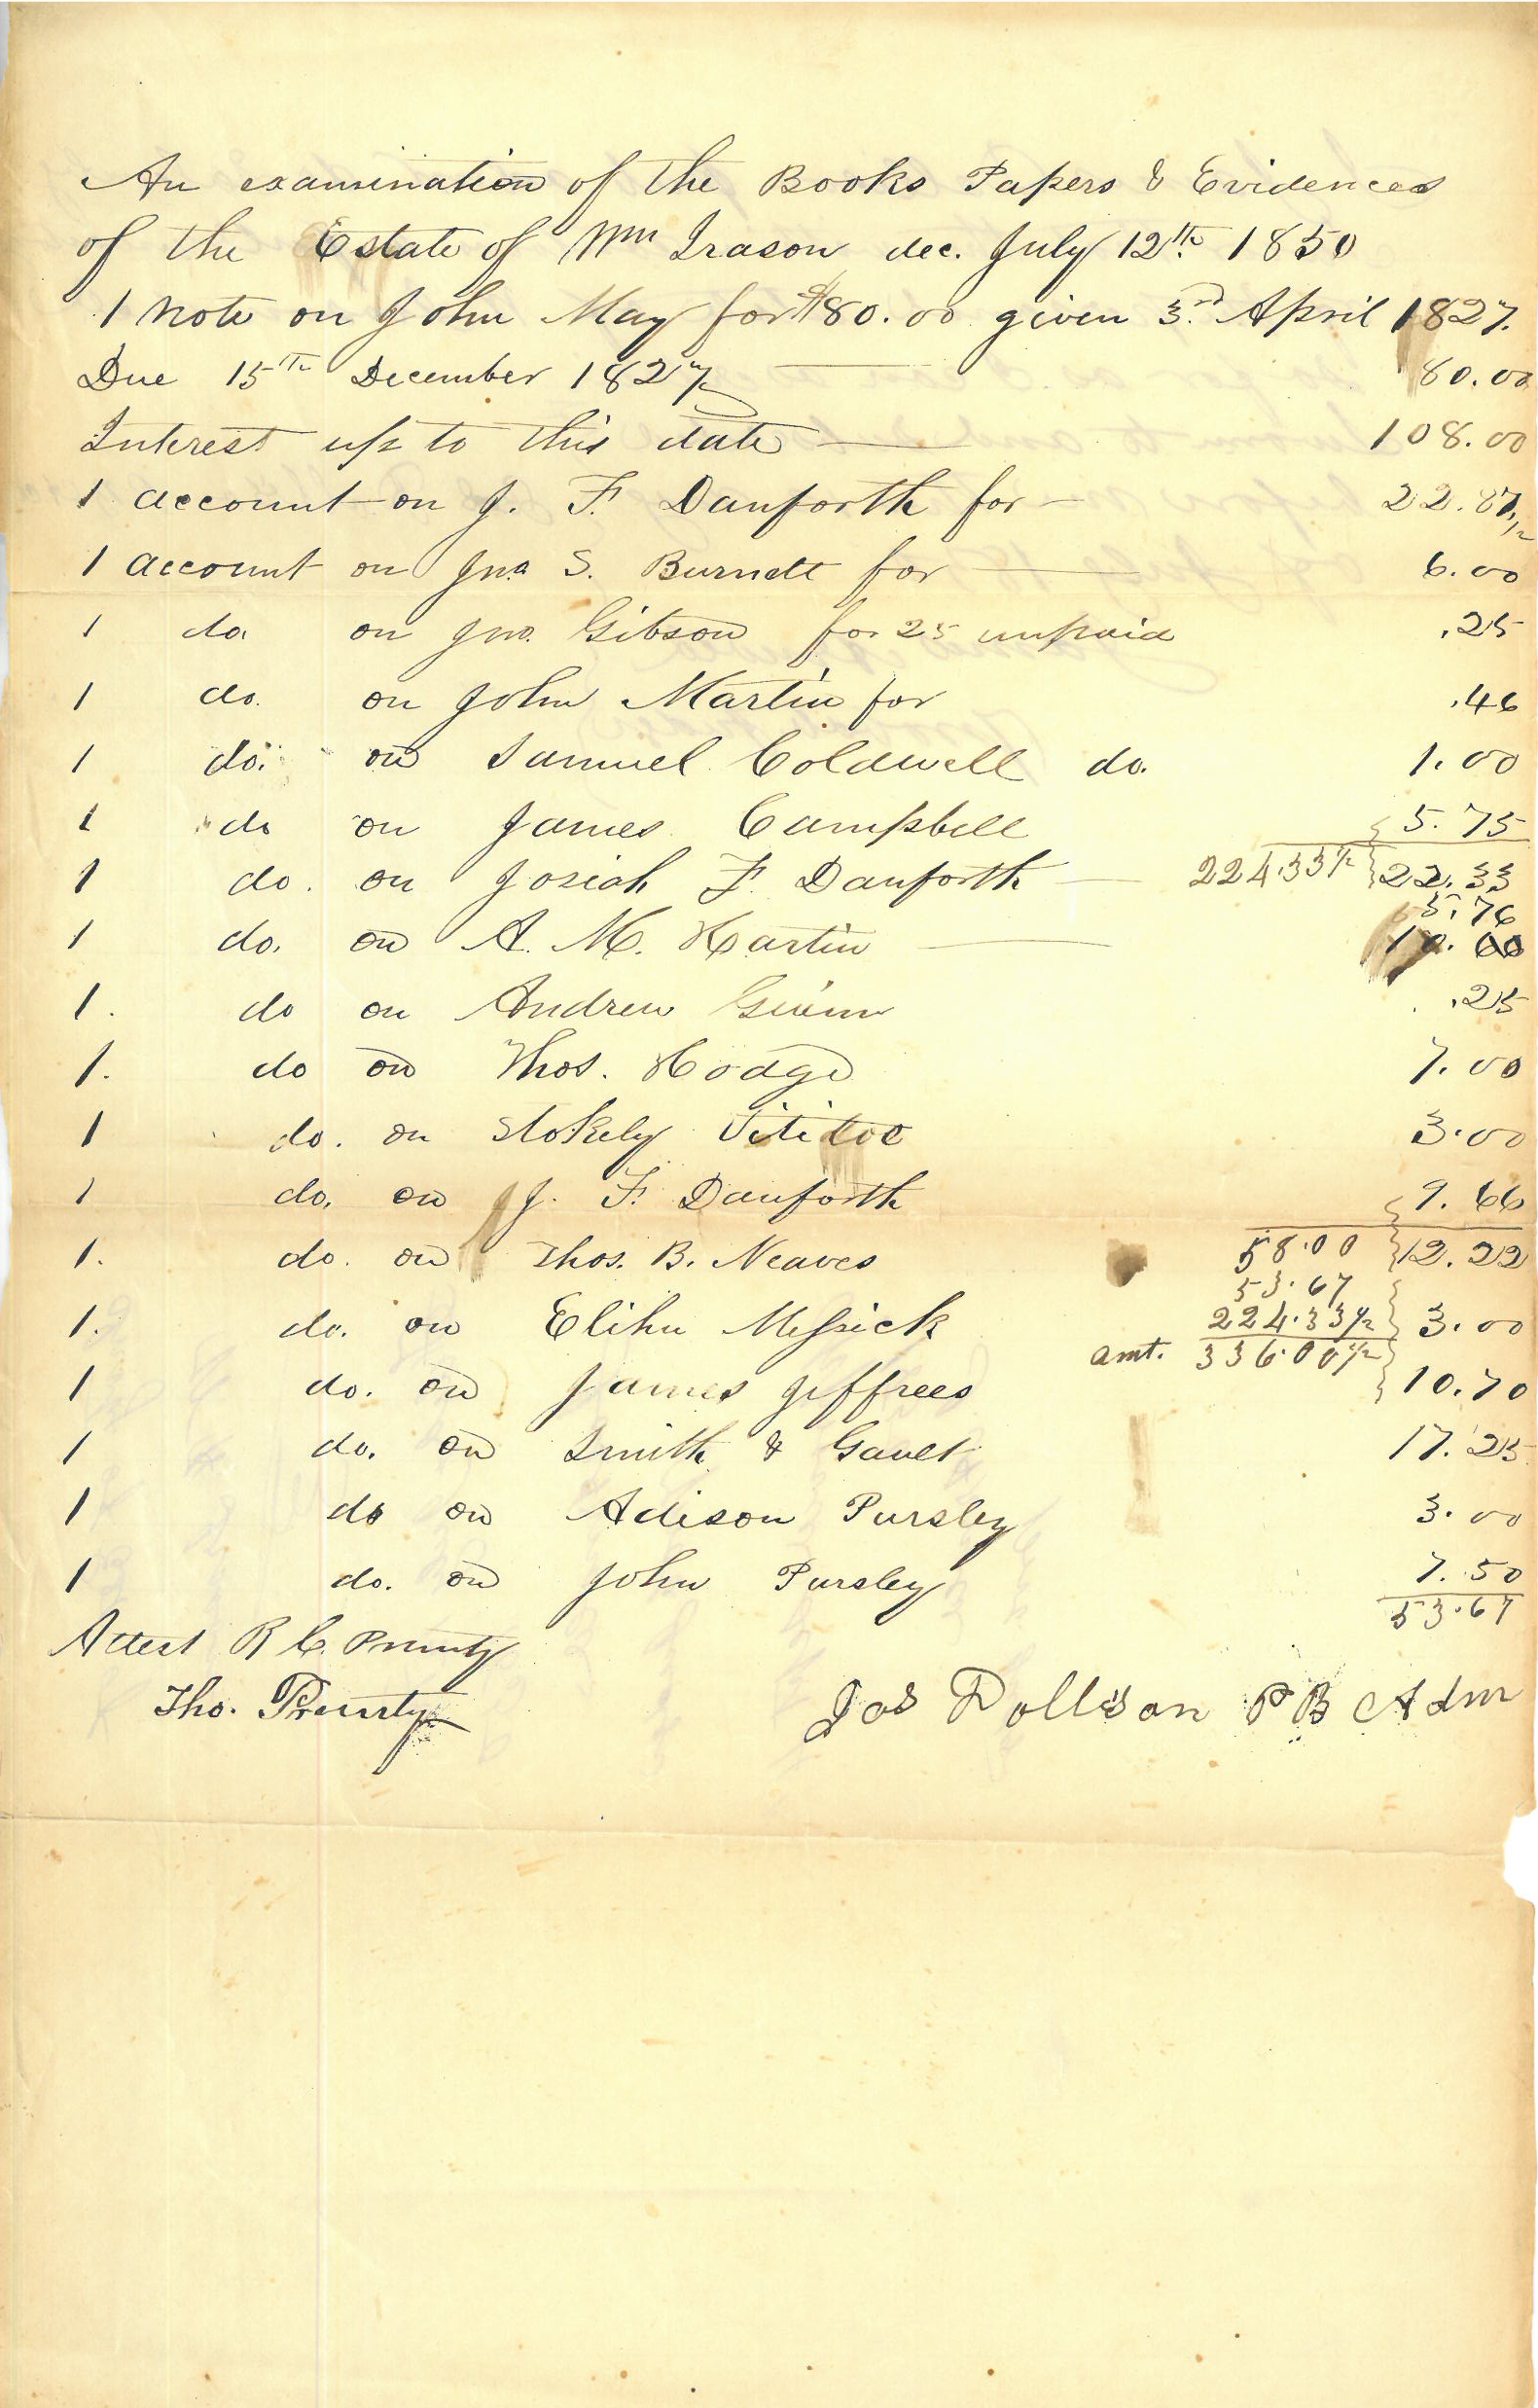 An examination of the Books Papers & Evidences
of the Estate of Wm Irason dec. July 12th 1850
1 Note on John May for $80.00 given 3rd April 1827.
Due 15th December 1827 80.00
Interest up to this date 108.00
1 account on J. F. Danforth for 22.87 1/2
1 account on Jna S. Burnett for 6.00
1 do. on Jno. Gibson for 25 unpaid .25
1 do. on John Martin for .46
1 do. on Samuel Coldwell do. 1.00
1 do on James Campbell 5.75
1 do. on Josiah F. Danforth 224.33 1/2 22.33
5.76
1 do. on A. M. Hartin 10.00
1. do on Andrew Guinn .25
1. do on Thos. Hodge 7.00
1 do. on Stokely 3.00
1 do. on J. F. Danforth 9.66
1. do. on Thos. B. Neaves 58.00 12.22
53.67
1. do. on Elihu Messick 224.33 1/2 3.00
amt. 336.00 1/2
1 do. on James Jeffrees 10.70
1 do. on Smith & Gault 17.25
1 do on Adison Pursley 3.00
1 do. on John Pursley 7.50
53.67
Attest R C. Prunty
Tho. Prunty Jas Rollison P B Adm